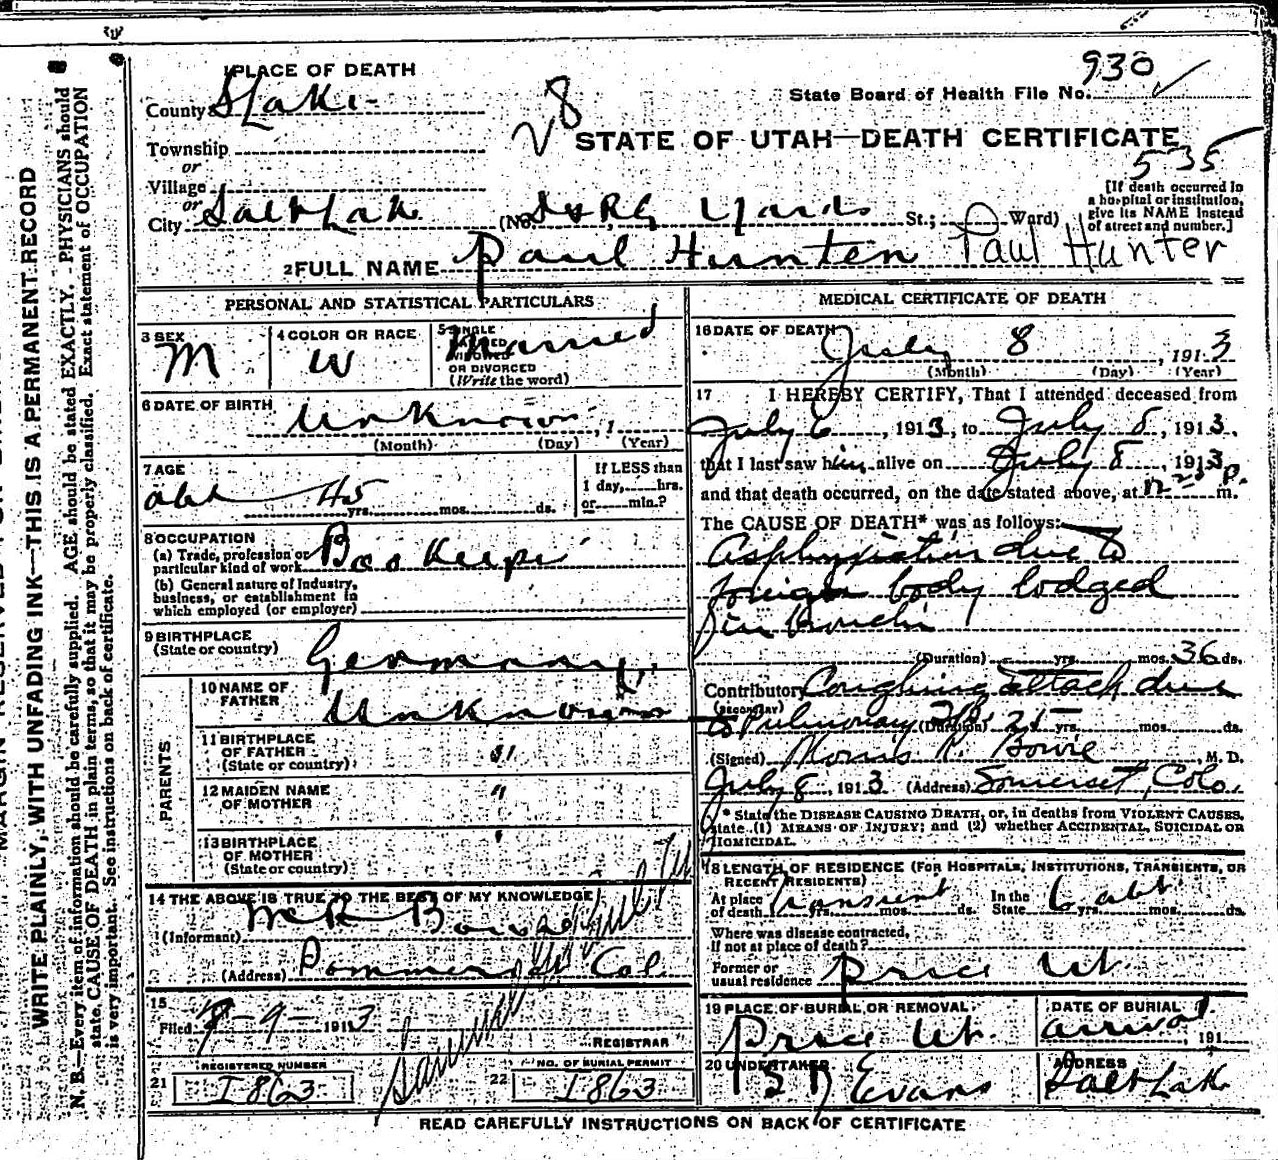 930
1 PLACE OF DEATH
County SLake
State Board of Health File No.
28
STATE OF UTAH—DEATH CERTIFICATE
535
Township
or
Village
or
City Salt Lake (No. D&RG Yards St.; Ward)
[If death occurred in
a hospital or institution,
give its NAME instead
of street and number.]
2 FULL NAME Paul Hunter Paul Hunter
PERSONAL AND STATISTICAL PARTICULARS
3 SEX M
4 COLOR OR RACE W
5 SINGLE
MARRIED
WIDOWED
OR DIVORCED
(Write the word)
Married
6 DATE OF BIRTH Unknown, 1
(Month) (Day) (Year)
7 AGE
abt 45 yrs. mos. ds.
If LESS than
1 day, hrs.
or min.?
8 OCCUPATION
(a) Trade, profession or
particular kind of work Bookeeper
(b) General nature of Industry,
business, or establishment in
which employed (or employer)
9 BIRTHPLACE
(State or country) Germany
PARENTS
10 NAME OF
FATHER Unknown
11 BIRTHPLACE
OF FATHER
(State or country) "
12 MAIDEN NAME
OF MOTHER "
13 BIRTHPLACE
OF MOTHER
(State or country) "
14 THE ABOVE IS TRUE TO THE BEST OF MY KNOWLEDGE
(Informant)
(Address) Col
15
Filed 7-9-1913
REGISTRAR
REGISTERED NUMBER
21 1863
NO. OF BURIAL PERMIT
22 1863
MEDICAL CERTIFICATE OF DEATH
16 DATE OF DEATH July 8, 1913
(Month) (Day) (Year)
17 I HEREBY CERTIFY, That I attended deceased from
July 6, 1913, to July 8, 1913,
that I last saw him alive on July 8, 1913,
and that death occurred, on the date stated above, at P. m.
The CAUSE OF DEATH* was as follows:
Asphyxiation due to
foreign body lodged
in bronchi
(Duration) yrs. mos. 36 ds.
Contributory Coughing attack due
(SECONDARY)
to Pulmonary TB. (Duration) yrs. mos. ds.
(Signed) Morris R. Bowie, M. D.
July 8, 1913 (Address) Somerset, Colo.
* State the DISEASE CAUSING DEATH, or, in deaths from VIOLENT CAUSES,
state (1) MEANS OF INJURY; and (2) whether ACCIDENTAL, SUICIDAL OR
HOMICIDAL.
18 LENGTH OF RESIDENCE (FOR HOSPITALS, INSTITUTIONS, TRANSIENTS, OR
RECENT RESIDENTS)
At place
of death Transient yrs. mos. ds. In the
State 6 abt yrs. mos. ds.
Where was disease contracted,
If not at place of death?
Former or
usual residence Price Ut.
19 PLACE OF BURIAL OR REMOVAL
Price Ut.
DATE OF BURIAL
arrival, 191
20 UNDERTAKER
Evans
ADDRESS
Salt Lake
READ CAREFULLY INSTRUCTIONS ON BACK OF CERTIFICATE
WRITE PLAINLY, WITH UNFADING INK—THIS IS A PERMANENT RECORD
N. B.—Every item of information should be carefully supplied. AGE should be stated EXACTLY. PHYSICIANS should
state CAUSE OF DEATH in plain terms, so that it may be properly classified. Exact statement of OCCUPATION
is very important. See instructions on back of certificate.